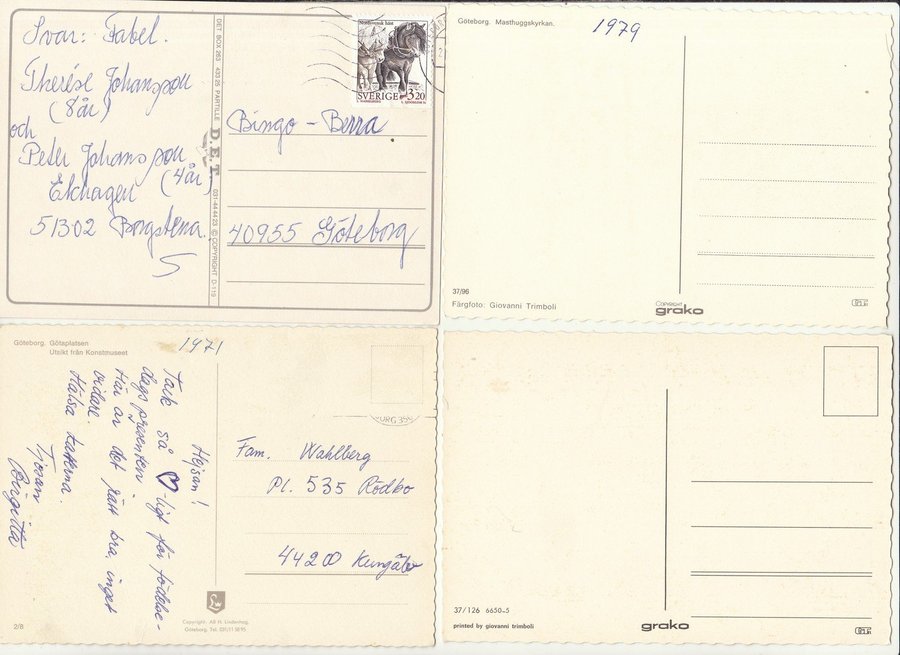 Svar: Fabel.
Therése Johansson
(8 år)
och
Peter Johansson
Ekhagen (4 år)
51302 Borgstena.
DET BOX 263 433 25 PARTILLE D.E.T. 031-44 44 23 © COPYRIGHT D-119
Nordsvensk häst
SVERIGE 3.20
Bingo - Berra
40955 Göteborg
Göteborg. Masthuggskyrkan.
1979
37/96
Färgfoto: Giovanni Trimboli
Copyright
grako
Göteborg. Götaplatsen
Utsikt från Konstmuseet
1971
Hejsan!
Tack så ♡-ligt för födelse-
dagspresenten.
Här är det rätt bra, inget
vidare.
Hälsa katterna.
Tjosan
Birgitta
Fam. Wahlberg
Pl. 535 Rödbo
44200 Kungälv
2/8
Copyright. AB H. Lindenhag,
Göteborg. Tel. 031/11 58 95
37/126 6650-5
printed by giovanni trimboli
grako